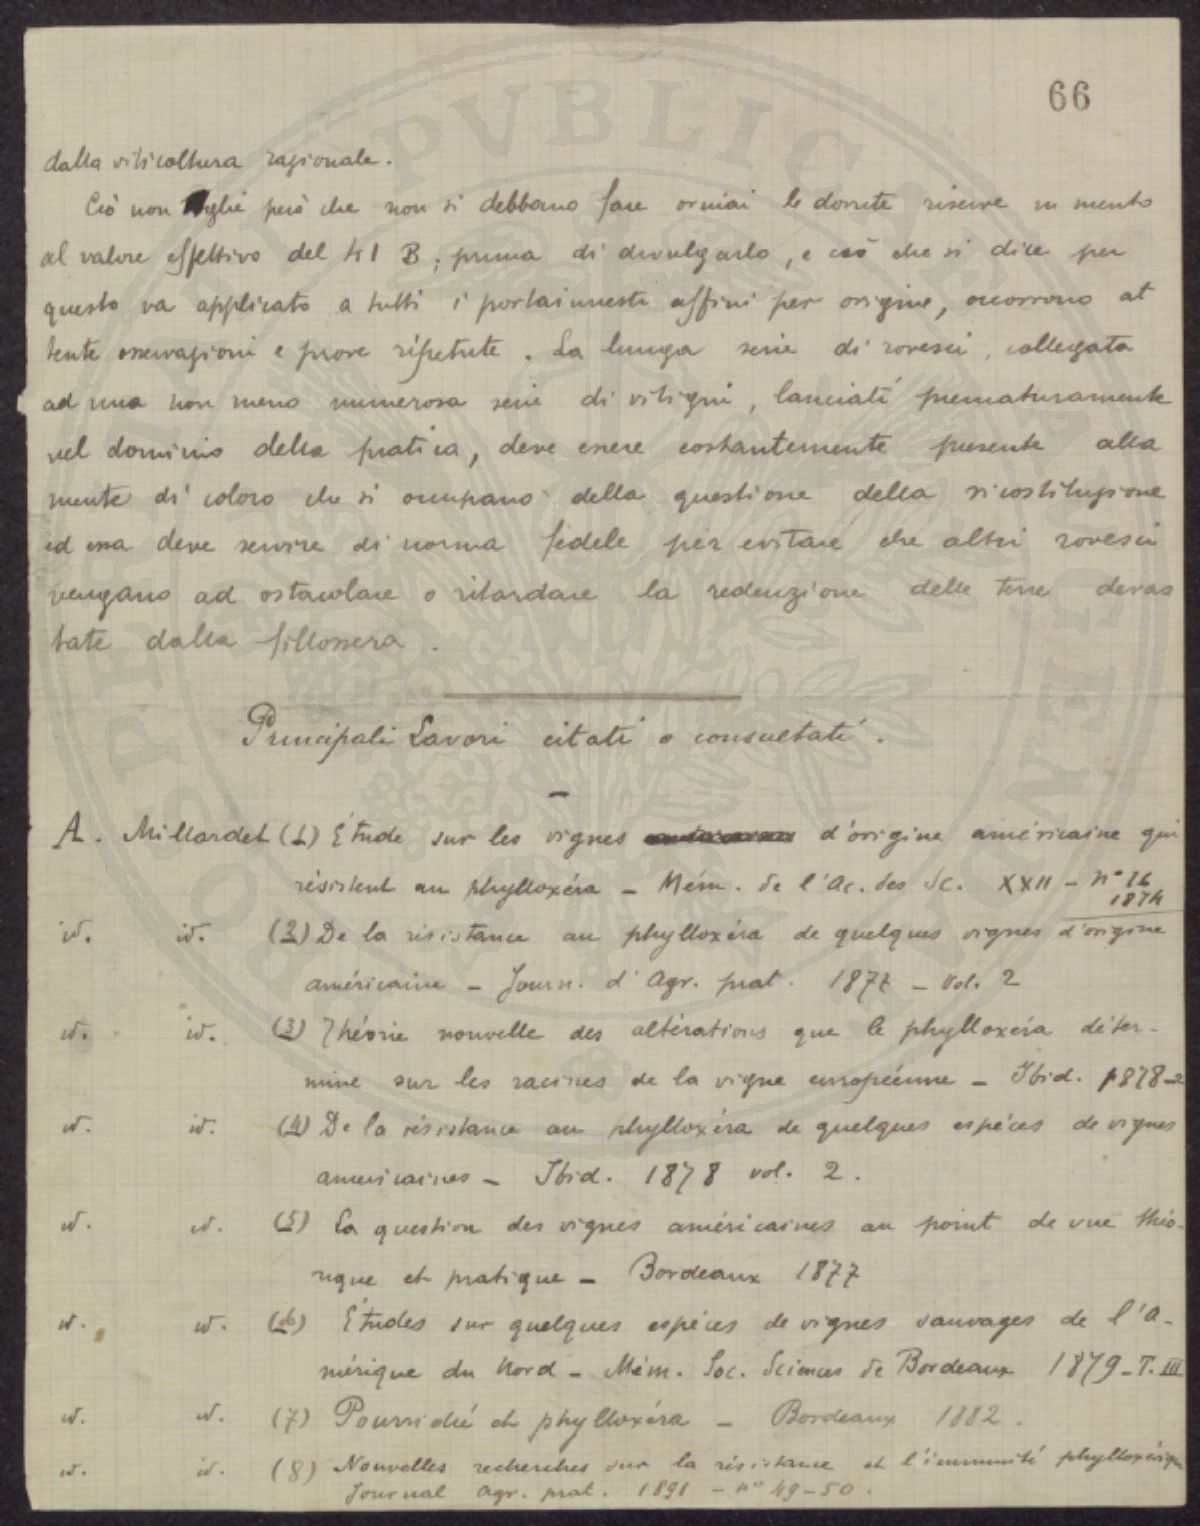 66
dalla viticoltura razionale.
Ciò non toglie però che non si debbano fare ormai le dovute riserve in merito
al valore effettivo del 41 B; prima di divulgarlo, e ciò che si dice per
questo va applicato a tutti i portainnesti affini per origine, occorrono at
tente osservazioni e prove ripetute. La lunga serie di rovesci, collegata
ad una non meno numerosa serie di vitigni, lanciati prematuramente
nel dominio della pratica, deve essere costantemente presente alla
mente di coloro che si occupano della questione della ricostituzione
ed essa deve servire di norma fedele per evitare che altri rovesci
vengano ad ostacolare o ritardare la redenzione delle terre devas
tate dalla fillossera.
Principali Lavori citati o consultati.
A. Millardet (1) Étude sur les vignes d'origine américaine qui
résistent au phylloxéra - Mém. de l'Ac. des Sc. XXII - n° 16
1874
id. id. (2) De la résistance au phylloxéra de quelques vignes d'origine
américaine - Journ. d'Agr. prat. 1877 - Vol. 2
id. id. (3) Théorie nouvelle des altérations que le phylloxéra déter-
mine sur les racines de la vigne européenne - Ibid. 1878-2
id. id. (4) De la résistance au phylloxéra de quelques espéces de vignes
americaines - Ibid. 1878 vol. 2.
id. id. (5) La question des vignes américaines au point de vue théo-
rique et pratique - Bordeaux 1877
id. id. (6) Études sur quelques espéces de vignes sauvages de l'A-
mérique du Nord - Mém. Soc. Sciences de Bordeaux 1879-T. III
id. id. (7) Pourridié et phylloxéra - Bordeaux 1882.
id. id. (8) Nouvelles recherches sur la résistance et l'immunité phylloxérique
Journal agr. prat. 1891 - n° 49-50.